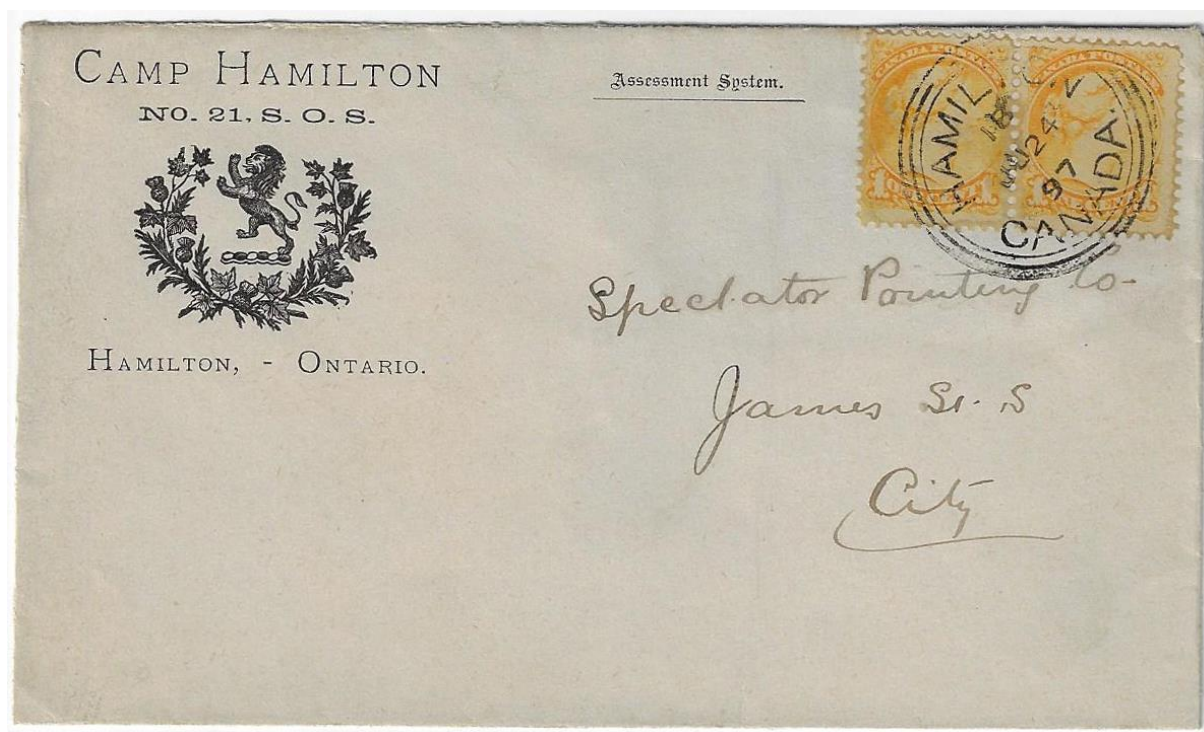 CAMP HAMILTON
NO. 21, S. O. S.
HAMILTON, - ONTARIO.
Assessment System.
CANADA POSTAGE
CANADA POSTAGE
HAMIL
24
97
CANADA.
Spectator Printing Co-
James St. S
City